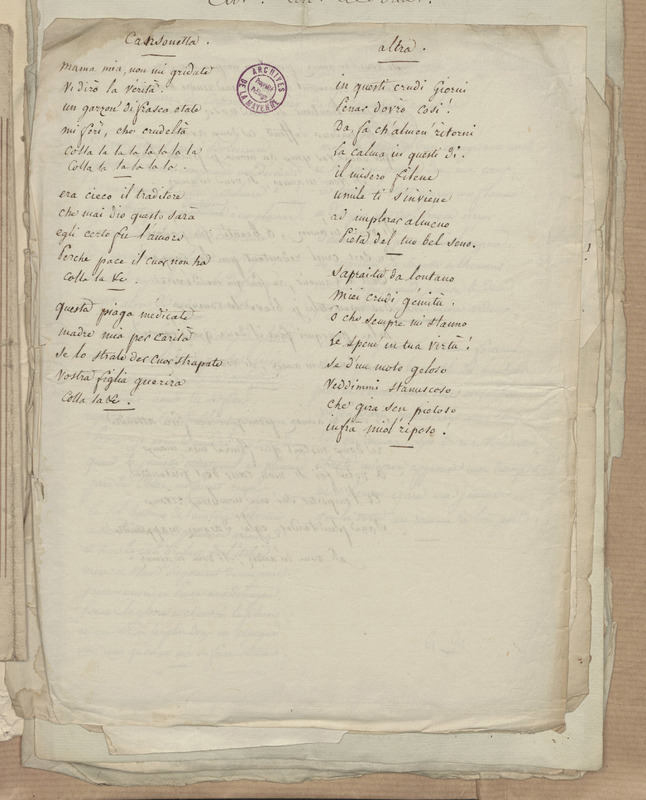 Cansonetta.
mama mia, non mi gridate
vi dirò la verità.
un garzon' di fresca etate
mi ferì, che crudeltà
colla la la la la la la
colla la la la la la.
era cieco il traditore
che mai dio questo sarà
egli certo fu l'amore
Perche pace il cuor non ha
colla la &c.
questa piaga médicate
madre mia per carità
se lo strale del cuor strapate
vostra figlia guerirà
colla la &c.
altra.
in questi crudi giorni
Penar dovrò cosi!
Da, fa ch'almen' ritorni
la calma in questi di.
il misero fileno
umile ti s'inviene
ad implorar almeno
Pietà del tuo bel seno.
Sapraitu da lontano
miei crudi gémiti.
o che sempre mi stanno
le speni in tua virtù!
se d'un moto geloso
veddimmi
che gira sen pietoso
infrà miol' riposo!
ARCHIVES
DE LA MAYENNE